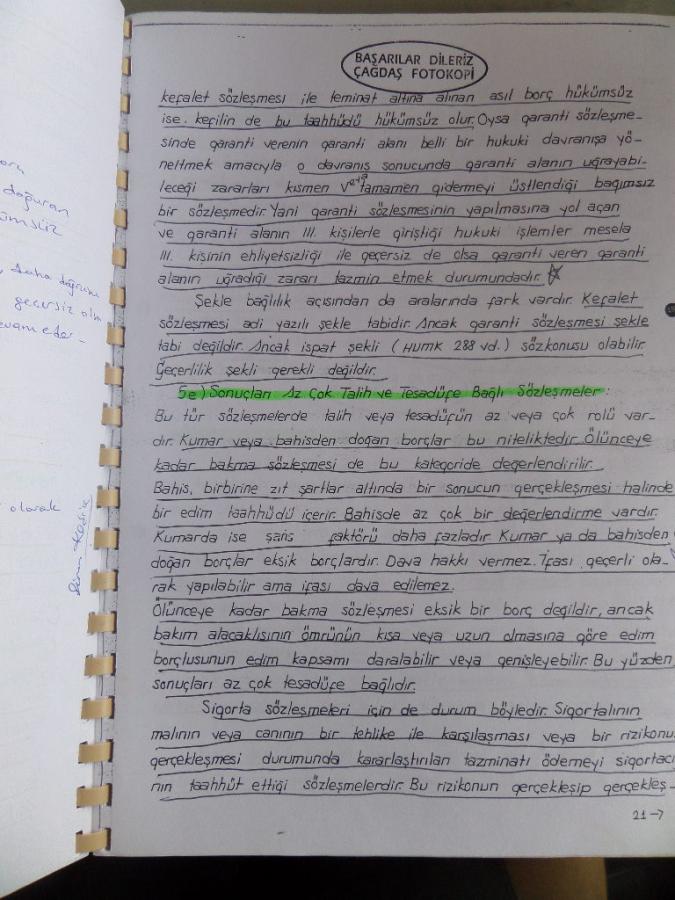 BAŞARILAR DİLERİZ
ÇAĞDAŞ FOTOKOPİ
kefalet sözleşmesi ile teminat altına alınan asıl borç hükümsüz
ise. kefilin de bu taahhüdü hükümsüz olur. Oysa garanti sözleşme-
sinde garanti verenin garanti alanı belli bir hukuki davranışa yö-
neltmek amacıyla o davranış sonucunda garanti alanın uğrayabi-
leceği zararları kısmen veya tamamen gidermeyi üstlendiği bağımsız
bir sözleşmedir. Yani garanti sözleşmesinin yapılmasına yol açan
ve garanti alanın III. kişilerle giriştiği hukuki işlemler mesela
III. kişinin ehliyetsizliği ile geçersiz de olsa garanti veren garanti
alanın uğradığı zararı tazmin etmek durumundadır.
Şekle bağlılık açısından da aralarında fark vardır. Kefalet
sözleşmesi adi yazılı şekle tabidir. Ancak garanti sözleşmesi şekle
tabi değildir. Ancak ispat şekli (HUMK 288 vd.) sözkonusu olabilir.
Geçerlilik şekli gerekli değildir.
5e) Sonuçları Az Çok Talih ve Tesadüfe Bağlı Sözleşmeler:
Bu tür sözleşmelerde talih veya tesadüfün az veya çok rolü var-
dır. Kumar veya bahisden doğan borçlar bu niteliktedir. Ölünceye
kadar bakma sözleşmesi de bu kategoride değerlendirilir.
Bahis, birbirine zıt şartlar altında bir sonucun gerçekleşmesi halinde
bir edim taahhüdü içerir. Bahisde az çok bir değerlendirme vardır.
Kumarda ise şans faktörü daha fazladır. Kumar ya da bahisden
doğan borçlar eksik borçlardır. Dava hakkı vermez. İfası geçerli ola-
rak yapılabilir ama ifası dava edilemez.
Ölünceye kadar bakma sözleşmesi eksik bir borç değildir, ancak
bakım alacaklısının ömrünün kısa veya uzun olmasına göre edim
borçlusunun edim kapsamı daralabilir veya genişleyebilir. Bu yüzden
sonuçları az çok tesadüfe bağlıdır.
Sigorta sözleşmeleri için de durum böyledir. Sigortalının
malının veya canının bir tehlike ile karşılaşması veya bir rizikonu
gerçekleşmesi durumunda kararlaştırılan tazminatı ödemeyi sigortacı
nın taahhüt ettiği sözleşmelerdir. Bu rizikonun gerçekleşip gerçekleş-
21→
doğuran
daha doğrusu
geçersiz olm
evam eder-
olarak